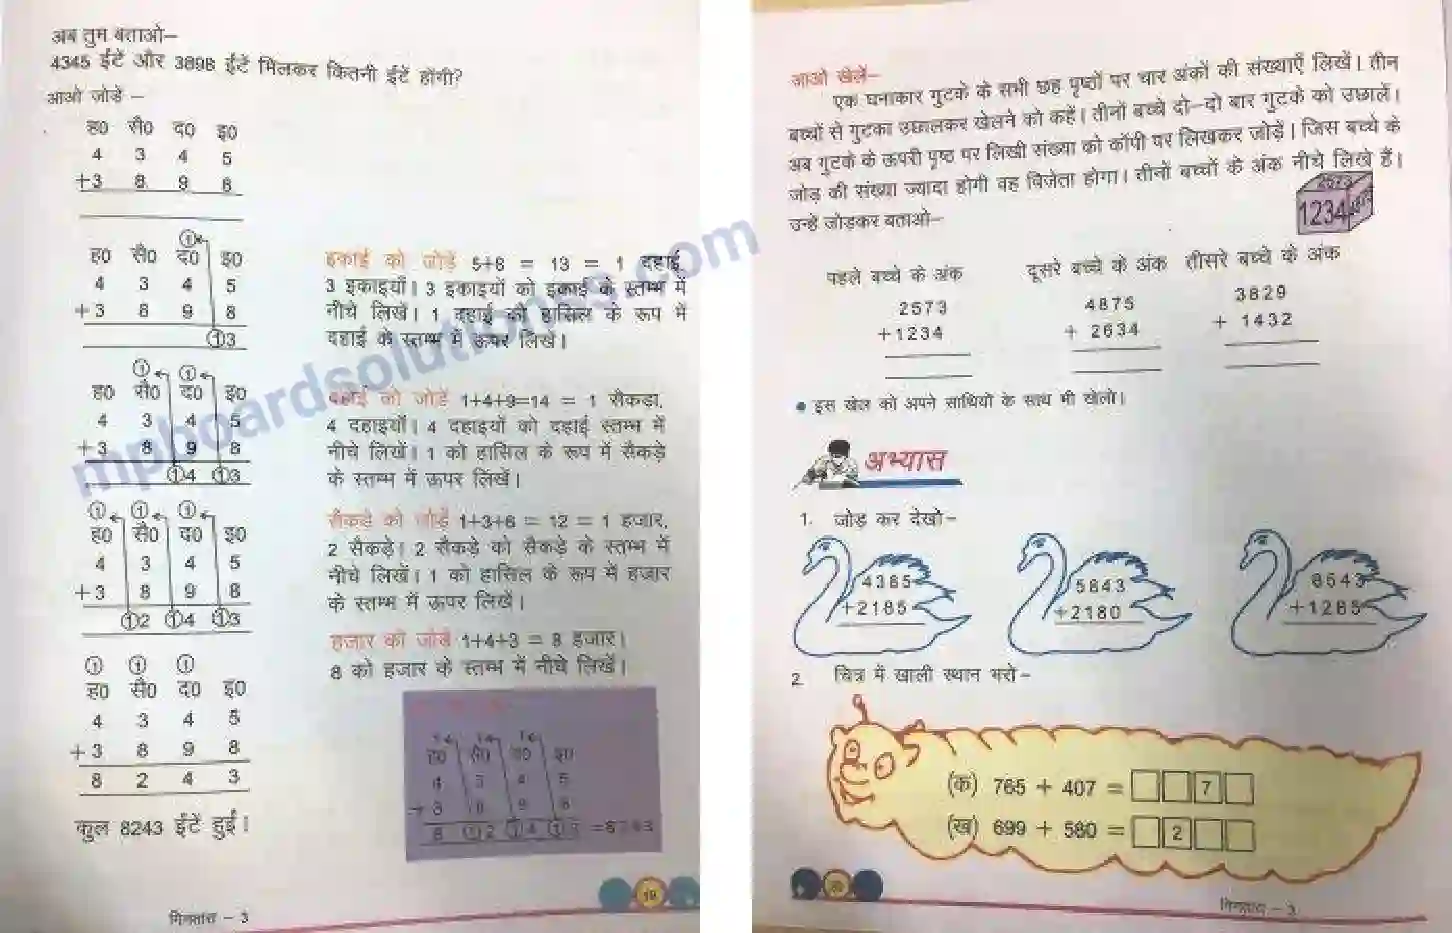 अब तुम बताओ–
4345 ईंटें और 3898 ईंटें मिलकर कितनी ईंटें होंगी?
आओ जोड़ें –
ह0 सै0 द0 इ0
4 3 4 5
+3 8 9 8
①
ह0 सै0 द0 इ0
4 3 4 5
+3 8 9 8
①3
इकाई को जोड़ें 5+8 = 13 = 1 दहाई,
3 इकाइयाँ। 3 इकाइयों को इकाई के स्तम्भ में
नीचे लिखें। 1 दहाई को हासिल के रूप में
दहाई के स्तम्भ में ऊपर लिखें।
① ①
ह0 सै0 द0 इ0
4 3 4 5
+3 8 9 8
①4 ①3
दहाई को जोड़ें 1+4+9=14 = 1 सैकड़ा,
4 दहाइयाँ। 4 दहाइयों को दहाई स्तम्भ में
नीचे लिखें। 1 को हासिल के रूप में सैकड़े
के स्तम्भ में ऊपर लिखें।
① ① ①
ह0 सै0 द0 इ0
4 3 4 5
+3 8 9 8
①2 ①4 ①3
सैकड़े को जोड़ें 1+3+8 = 12 = 1 हजार,
2 सैकड़े। 2 सैकड़े को सैकड़े के स्तम्भ में
नीचे लिखें। 1 को हासिल के रूप में हजार
के स्तम्भ में ऊपर लिखें।
① ① ①
ह0 सै0 द0 इ0
4 3 4 5
+3 8 9 8
8 2 4 3
हजार को जोड़ें 1+4+3 = 8 हजार।
8 को हजार के स्तम्भ में नीचे लिखें।
ह0 सै0 द0 इ0
4 3 4 5
+3 8 9 8
8 ①2 ①4 ①3 =8243
कुल 8243 ईंटें हुईं।
19
गिनतारा – 3
mpboardsolutionss.com
आओ खेलें–
एक घनाकार गुटके के सभी छह पृष्ठों पर चार अंकों की संख्याएँ लिखें। तीन
बच्चों से गुटका उछालकर खेलने को कहें। तीनों बच्चे दो–दो बार गुटके को उछालें।
अब गुटके के ऊपरी पृष्ठ पर लिखी संख्या को कॉपी पर लिखकर जोड़ें। जिस बच्चे के
जोड़ की संख्या ज्यादा होगी वह विजेता होगा। तीनों बच्चों के अंक नीचे लिखे हैं।
उन्हें जोड़कर बताओ–
2573
1234
पहले बच्चे के अंक दूसरे बच्चे के अंक तीसरे बच्चे के अंक
2573 4875 3829
+1234 + 2634 + 1432
● इस खेल को अपने साथियों के साथ भी खेलो।
अभ्यास
1. जोड़ कर देखो–
4365 5843 6543
+2185 +2180 +1265
2 चित्र में खाली स्थान भरो–
(क) 765 + 407 = 7
(ख) 699 + 580 = 2
20
गिनतारा – 3